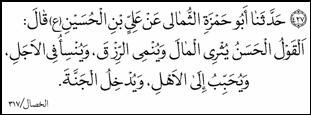 ٤٣٧ حَدَّثَنَا أَبُو حَمْزَةَ الثُّمَالِى عَنْ عَلِيِّ بْنِ الْحُسَيْنِ (ع) قَالَ:
اَلْقَوْلُ الْحَسَنُ يُثْرِى الْمَالَ وَيُنْمِى الرِّزْقَ، وَيُنْسِأُ فِى الْاَجَلِ،
وَيُحَبِّبُ إِلَى الْاَهْلِ، وَيُدْخِلُ الْجَنَّةَ.
الخصال/٣١٧